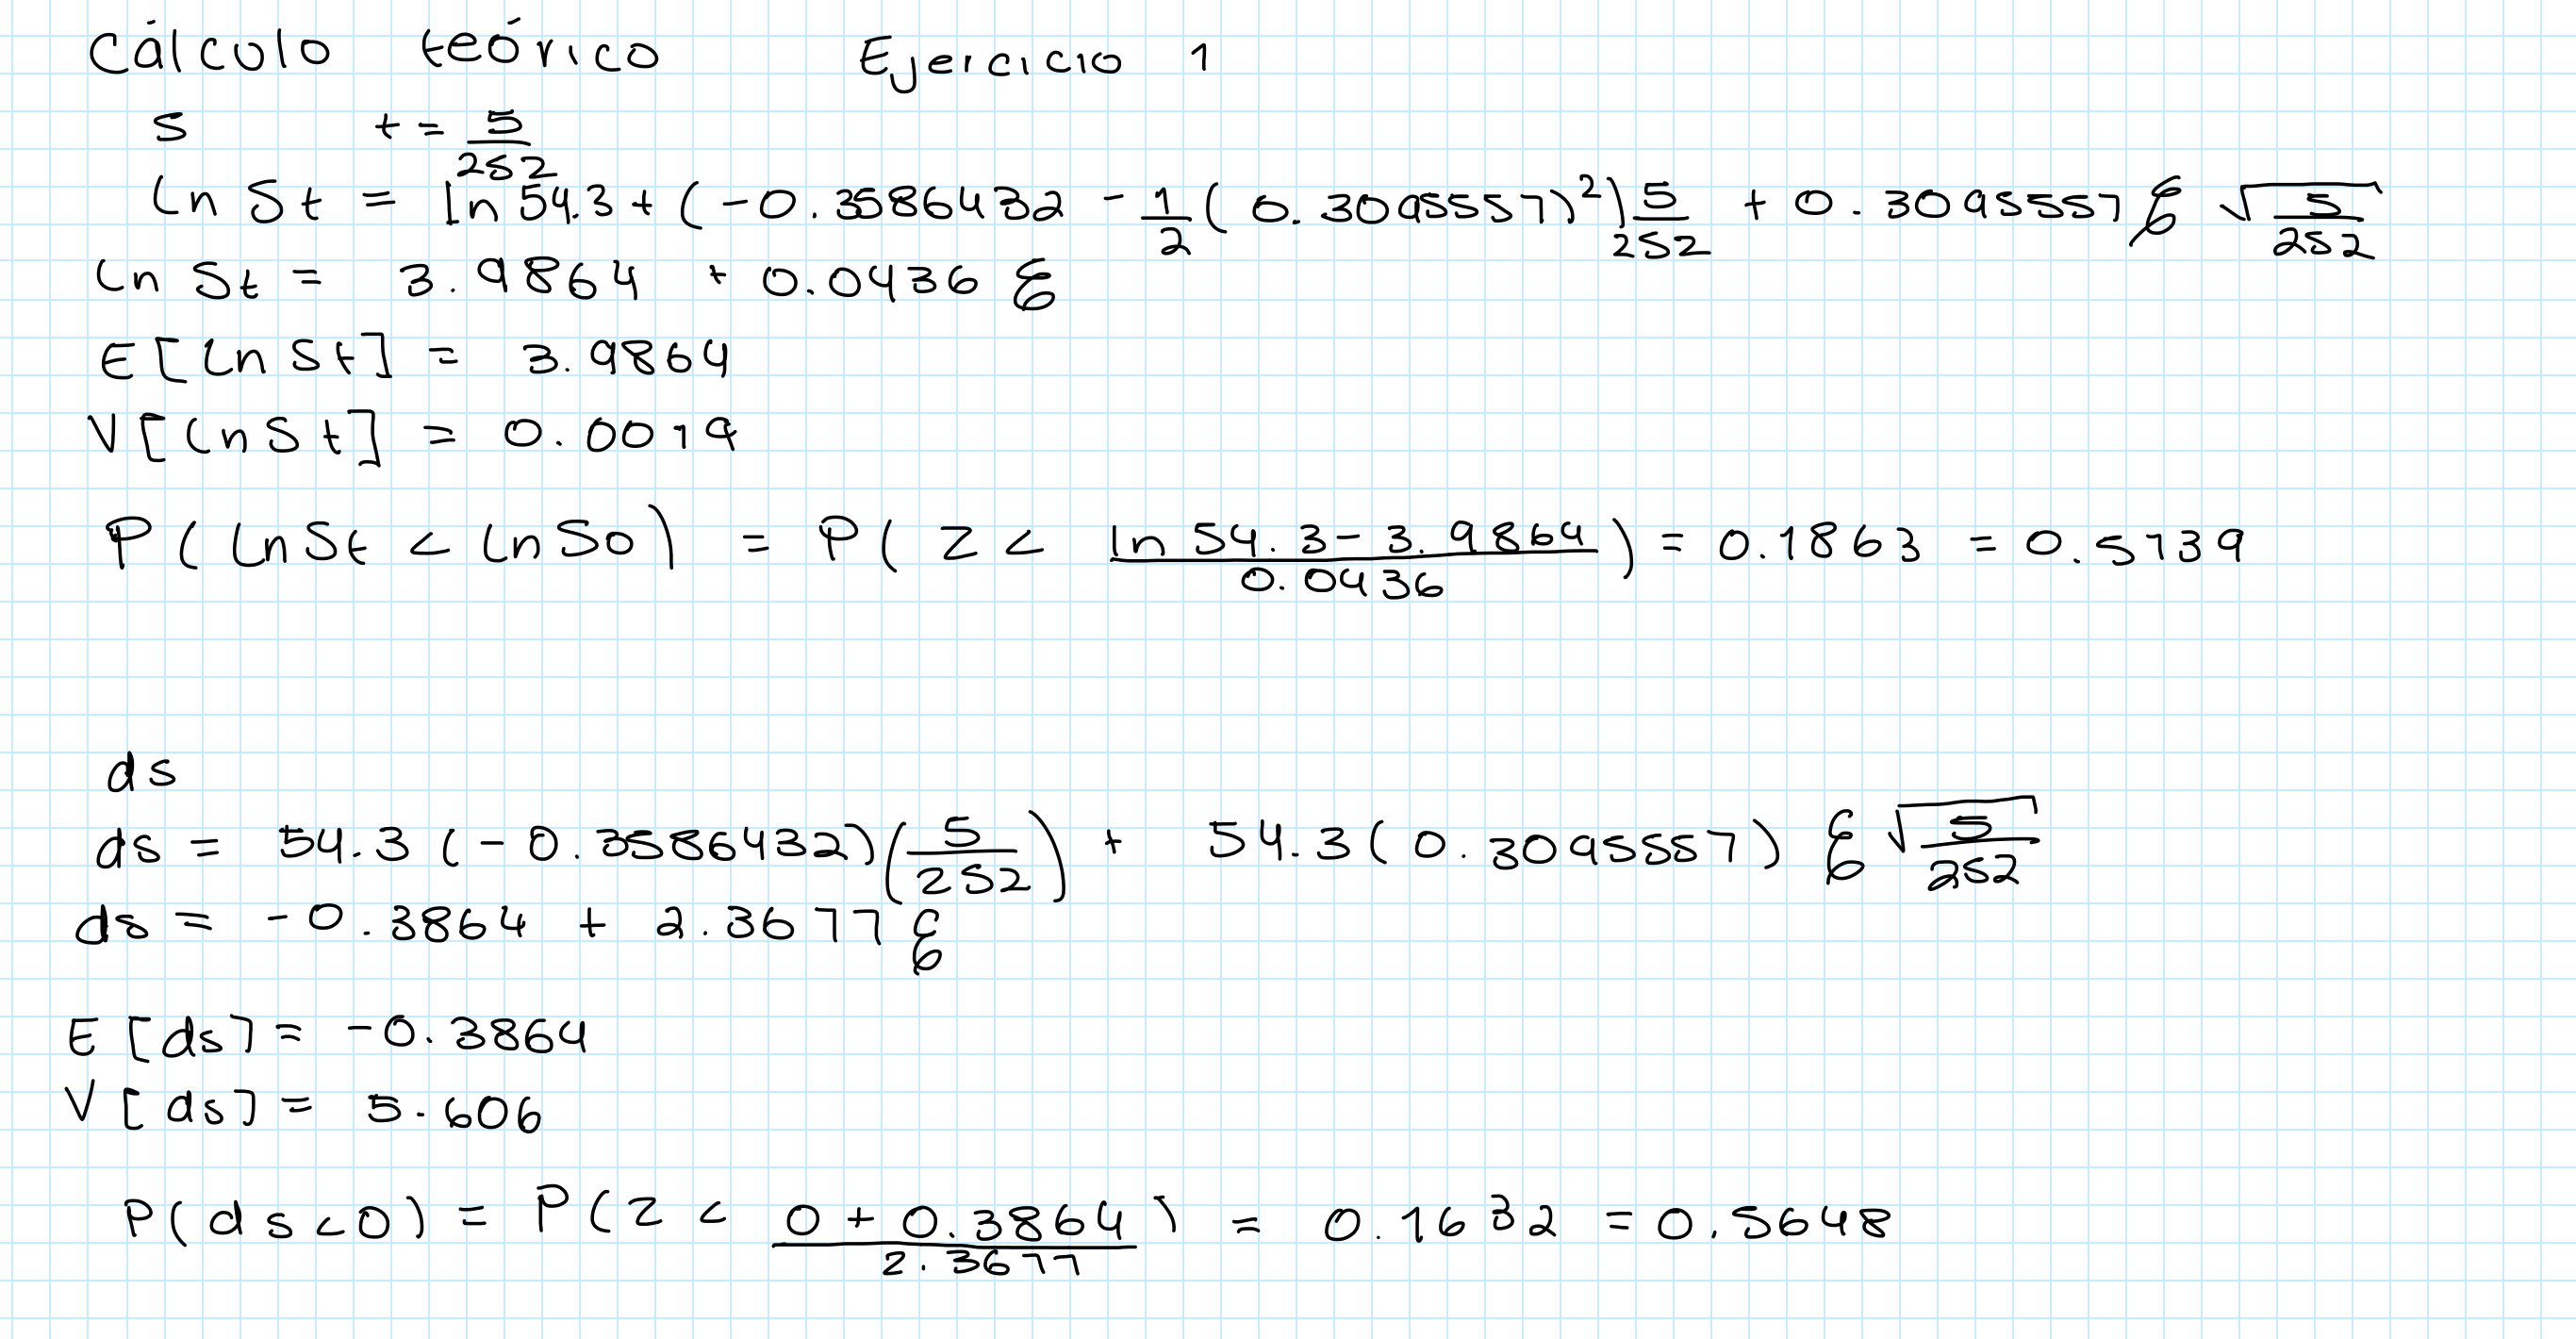 Cálculo teórico Ejercicio 1
S t = 5/252
ln St = ln 54.3 + (-0.3586432 - 1/2 (0.3095557)²) 5/252 + 0.3095557 ε √(5/252)
ln St = 3.9864 + 0.0436 ε
E[ln St] = 3.9864
V[ln St] = 0.0019
P(ln St < ln S0) = P(Z < (ln 54.3 - 3.9864)/0.0436) = 0.1863 = 0.5739
ds
ds = 54.3 (-0.3586432)(5/252) + 54.3 (0.3095557) ε √(5/252)
ds = -0.3864 + 2.3677 ε
E[ds] = -0.3864
V[ds] = 5.606
P(ds < 0) = P(Z < (0 + 0.3864)/2.3677) = 0.1632 = 0.5648